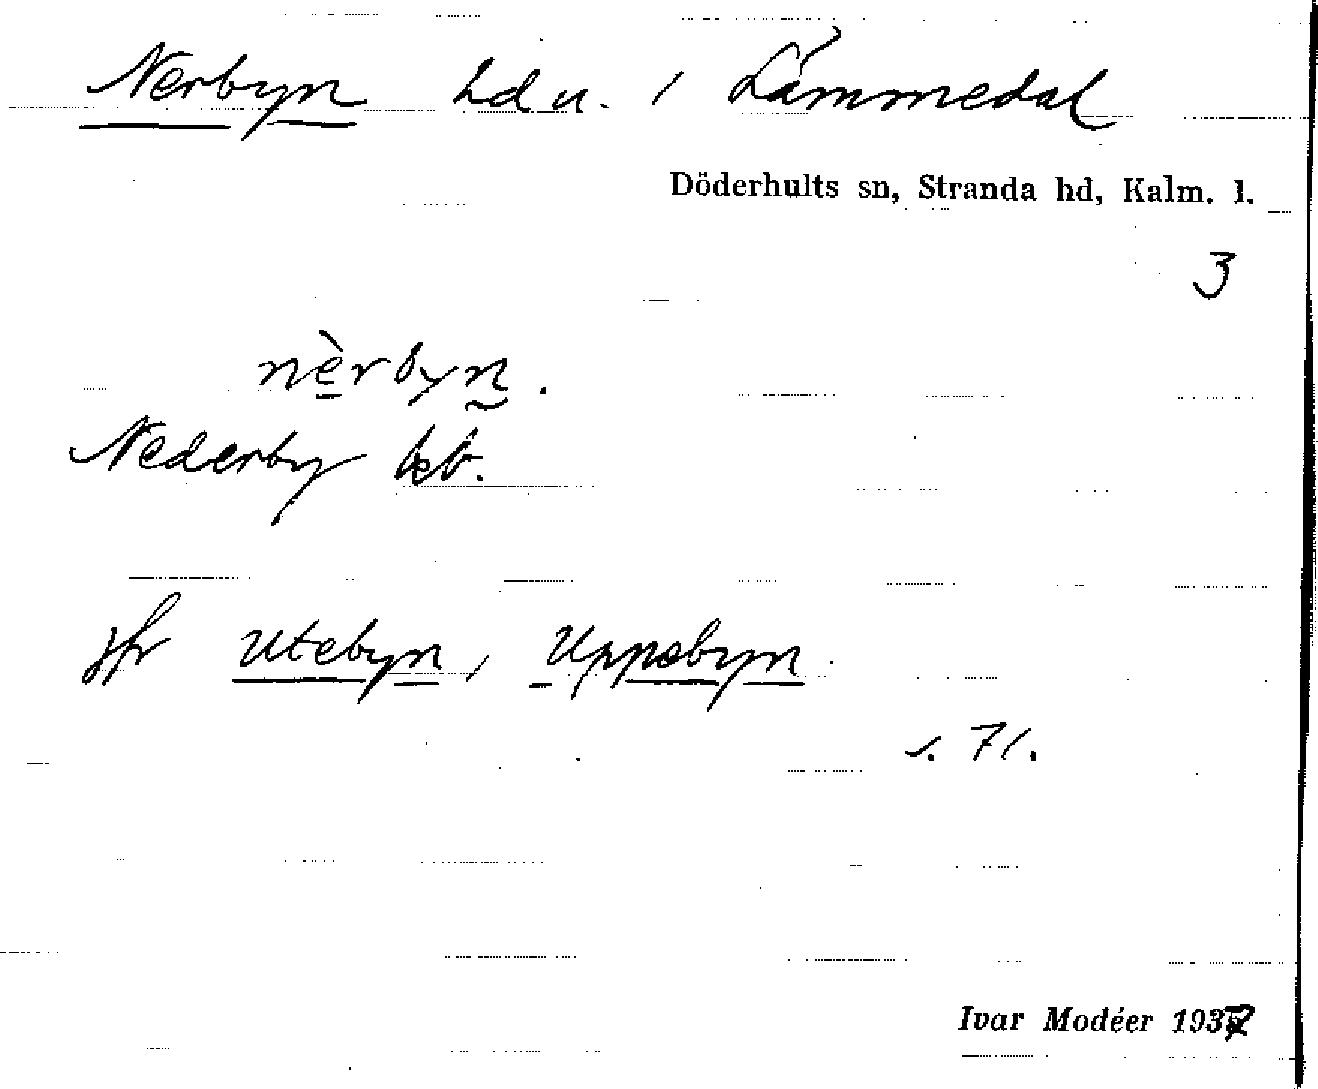 Nerbyn hd u. i Lämmedal
Döderhults sn, Stranda hd, Kalm. l.
3
nèrbyn.
Nederby kb.
jfr Utebyn, Uppebyn
s. 71.
Ivar Modéer 1937